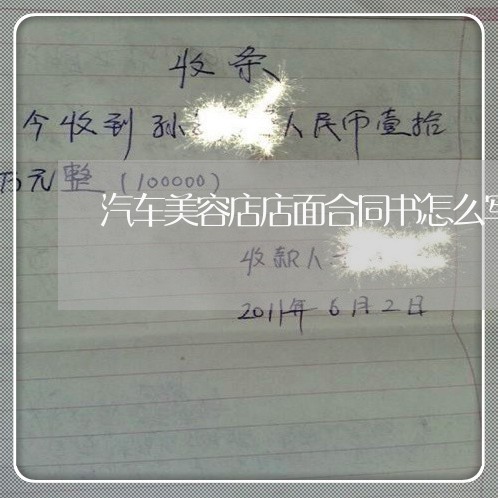 收条
今收到孙 人民币壹拾
万元整（100000）
汽车美容店店面合同书怎么写
收款人
2011年6月2日